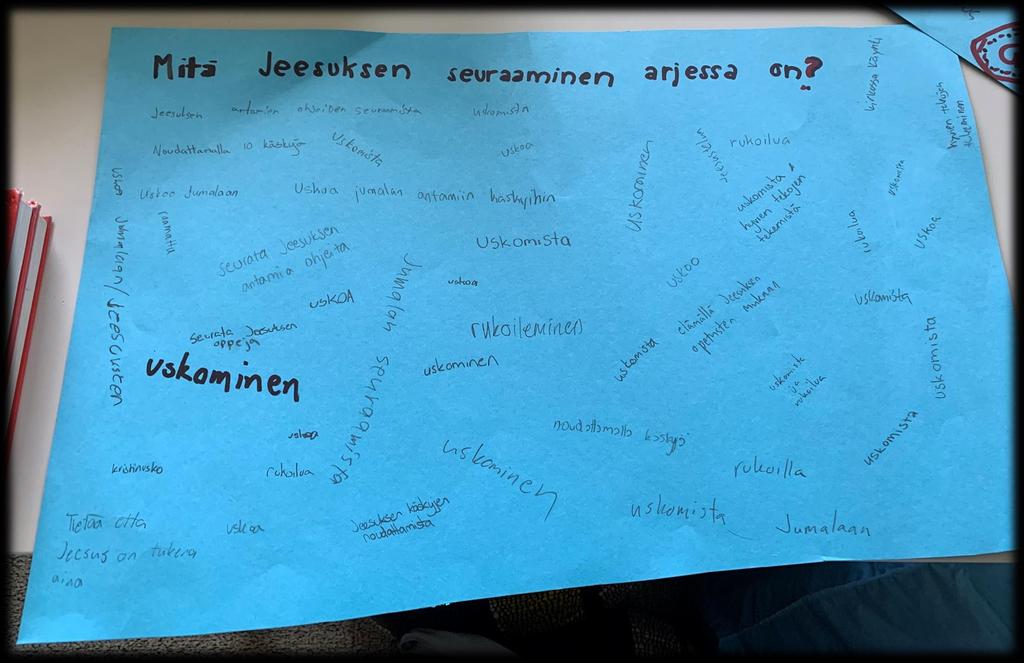 Mitä Jeesuksen seuraaminen arjessa on?
kirkossa käynti
hyvien tekojen
tekeminen
Jeesuksen antamien ohjeiden seuraamista
uskomista
Noudattamalla 10 käskyjä
uskomista
uskoa
rukoilua
uskoa Jumalaan/Jeesukseen
Uskoo Jumalaan
Uskoa jumalan antamiin käskyihin
uskominen
uskomista &
hyvien tekojen
tekemistä
uskomista
raamattu
seurata Jeesuksen
antamia ohjeita
Uskomista
rukoilua
uskoa
Jumalan seuraamista
uskoa
uskoo
USKOA
elämällä Jeesuksen
opetusten mukaan
uskomista
seurata Jeesuksen
oppeja
rukoileminen
uskominen
uskominen
uskomista
uskomista
ja
rukoilua
uskomista
uskoa
noudattamalla käskyjä
uskomista
kristinusko
rukoilua
uskominen
rukoilla
Tietää että
Jeesus on tukena
aina
uskoa
Jeesuksen käskyjen
noudattamista
uskomista Jumalaan